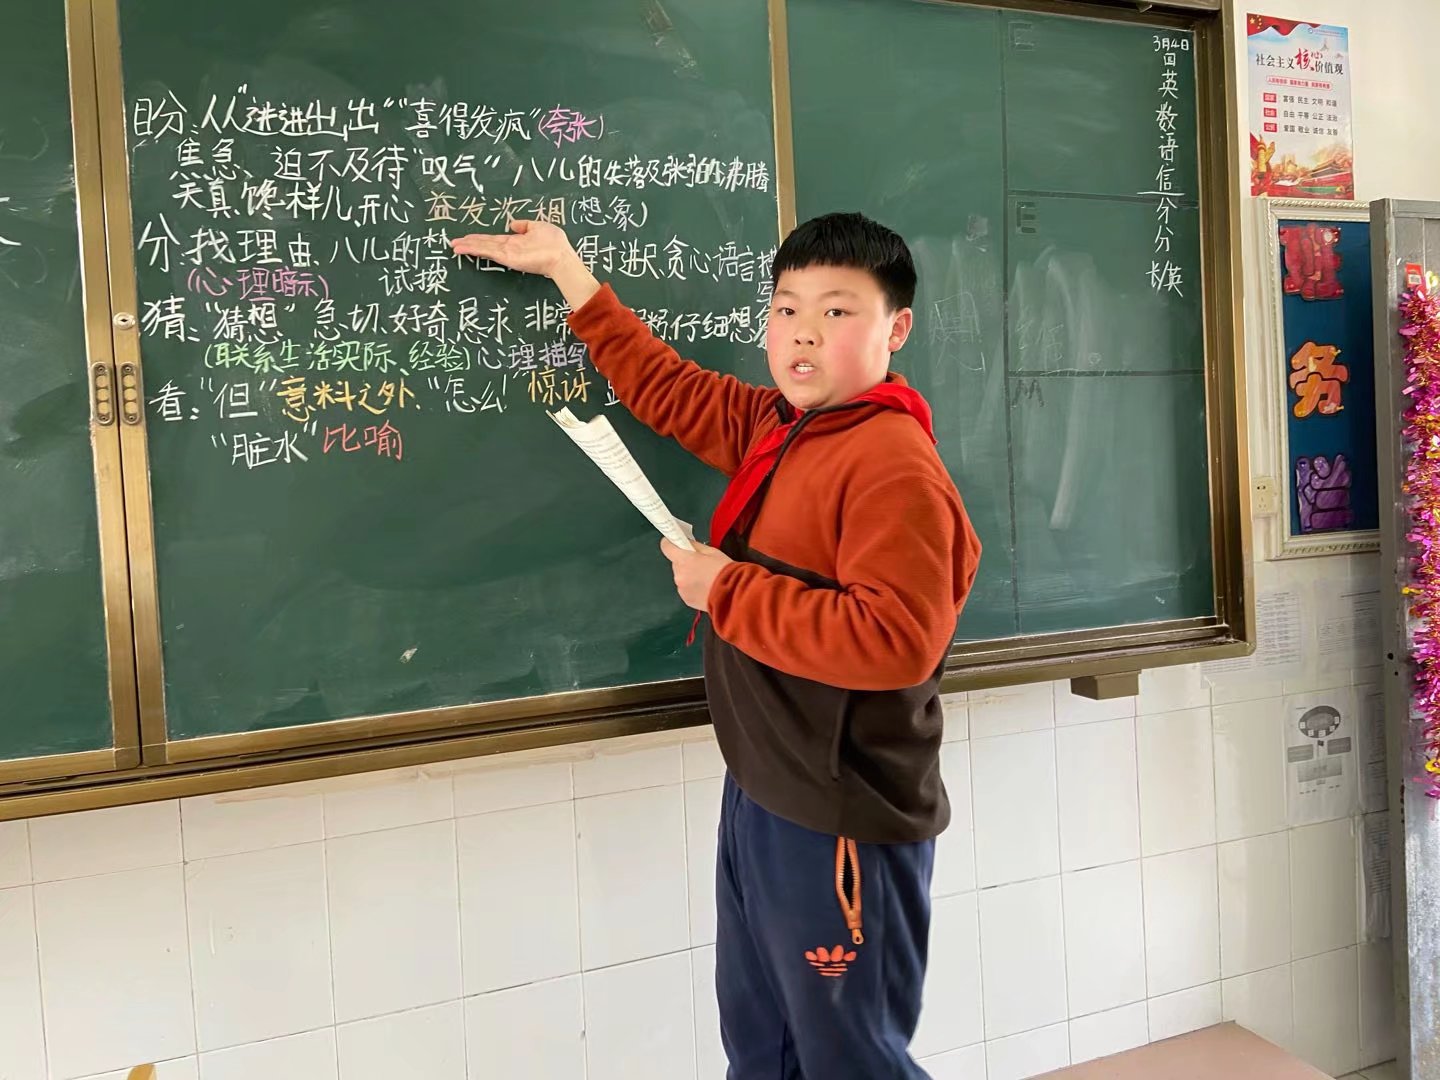 盼、从“进进出出”“喜得发疯”(夸张)
焦急、迫不及待“叹气”八儿的失落及张弛的沸腾
天真、馋样儿、开心 益发浓稠(想象)
分、找理由、八儿的禁不住 得寸进尺、贪心、语言描写
(心理暗示) 试探
猜:“猜想”急切、好奇、恳求、非常 粥、仔细想象
(联系生活实际、经验)心理描写
看:“但”意料之外、“怎么”惊讶
“脏水”比喻
3月4日
四
英
数
语
信
分
分
长/英
E
E
M
社会主义核心价值观
富强 民主 文明 和谐
自由 平等 公正 法治
爱国 敬业 诚信 友善
务